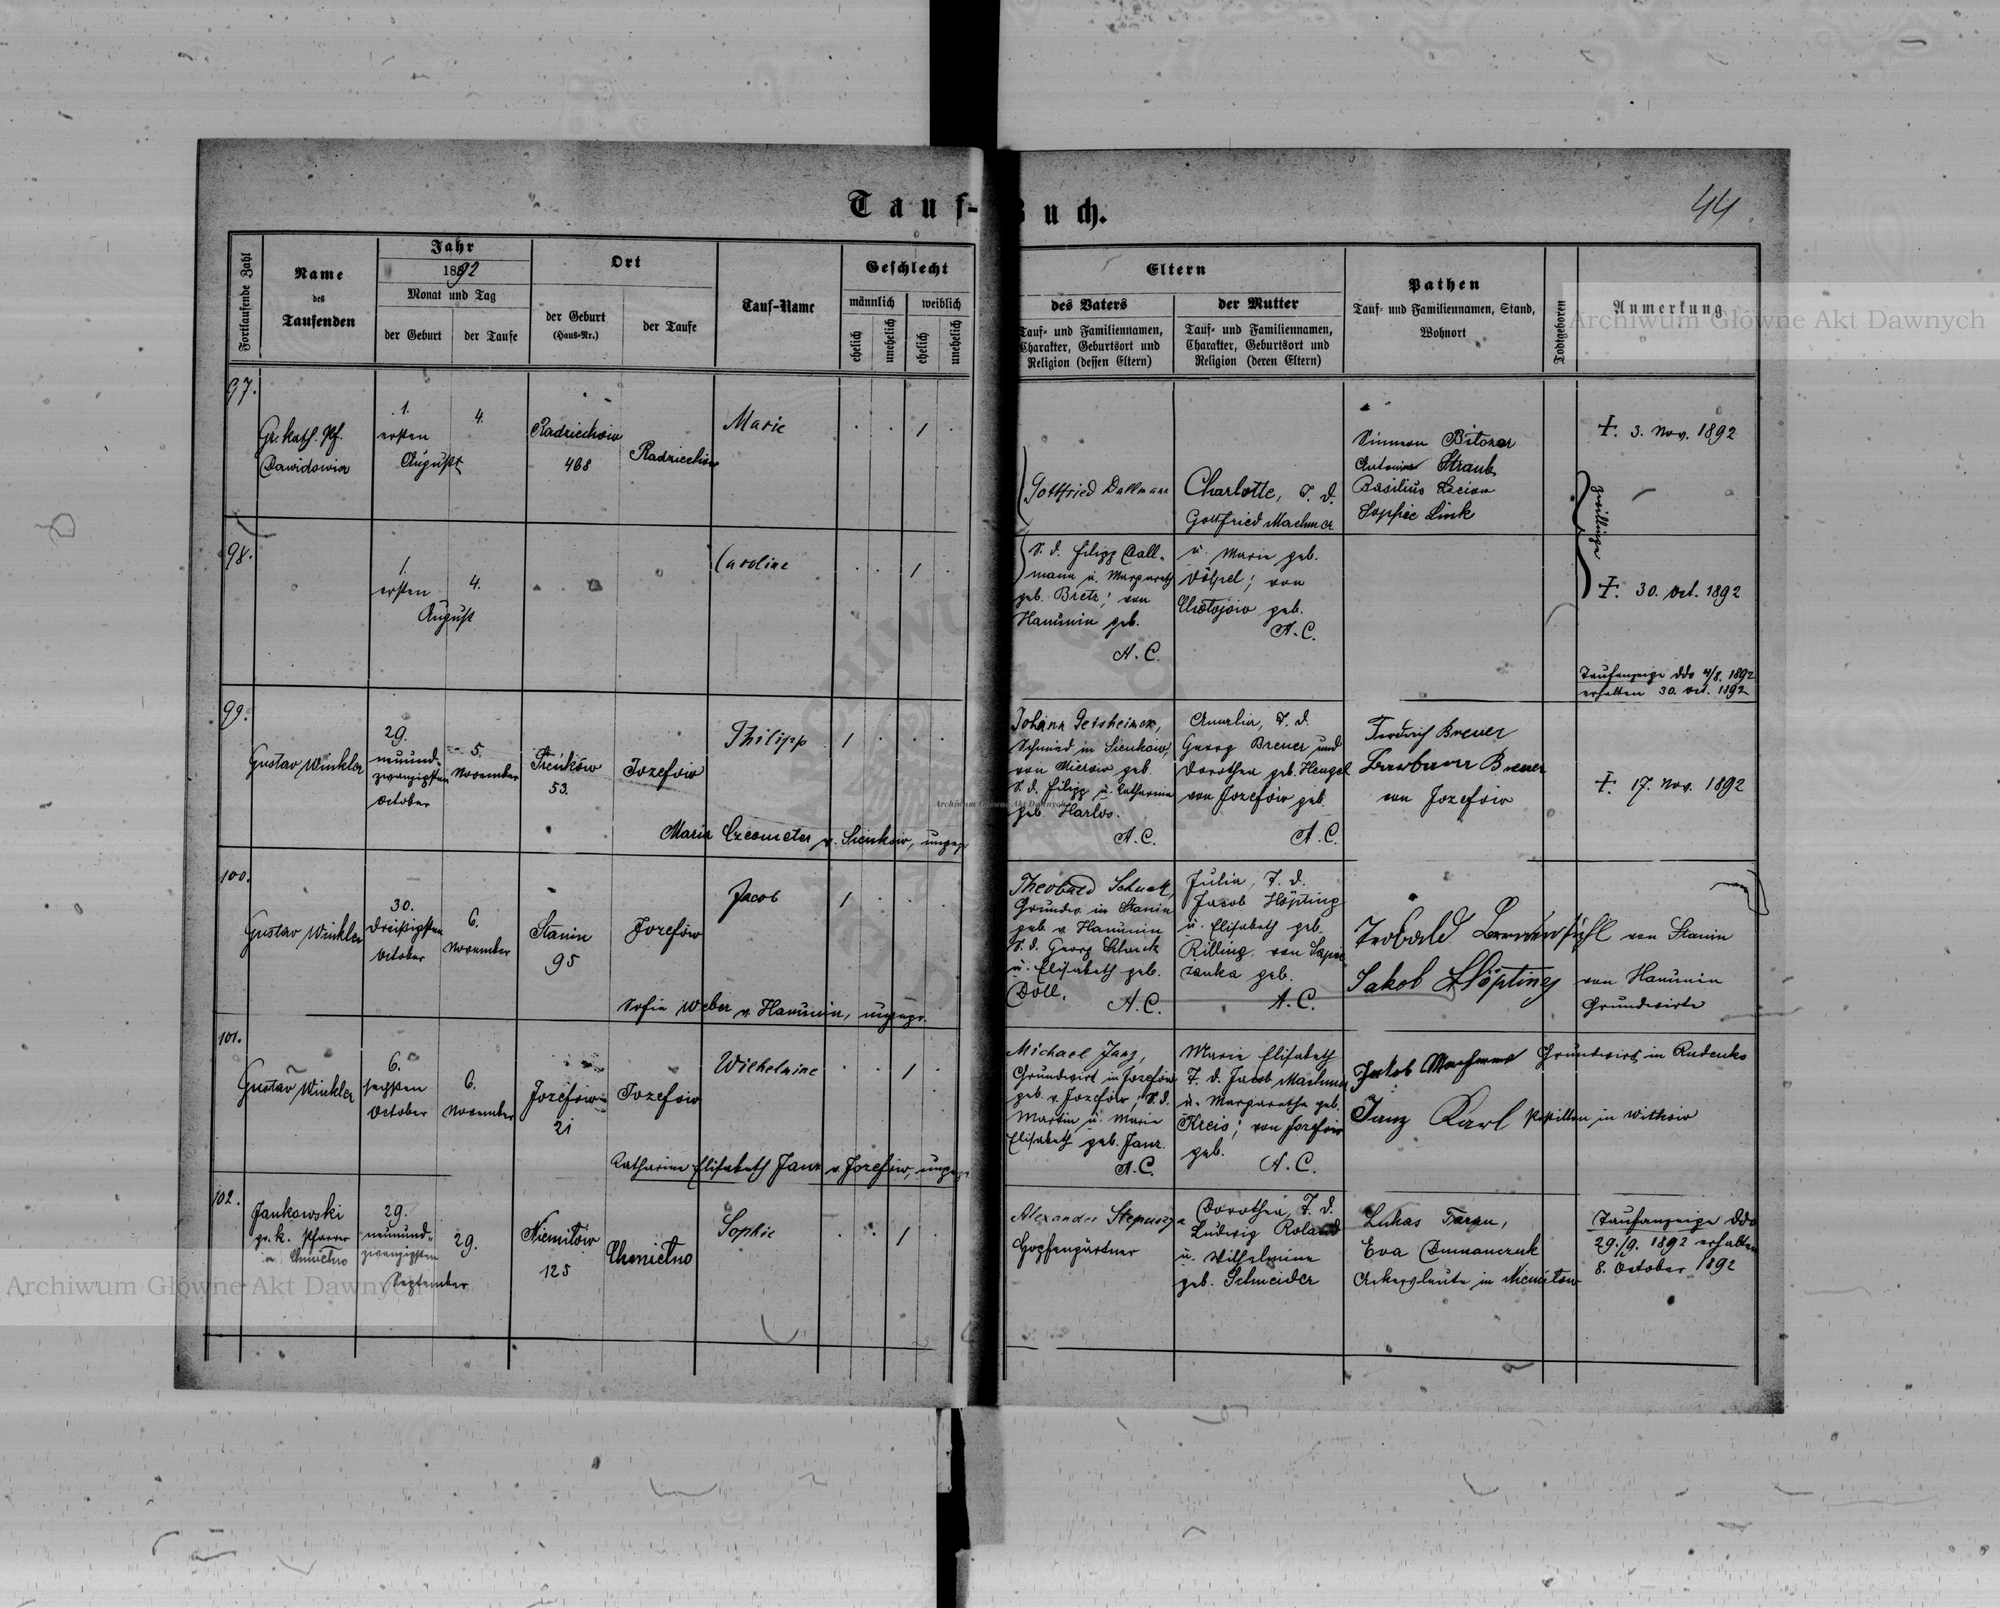 Tauf-Buch.
44
Fortlaufende Zahl
Name
des
Taufenden
Jahr
1892
Monat und Tag
der Geburt
der Taufe
Ort
der Geburt
(Haus-Nr.)
der Taufe
Tauf-Name
Geschlecht
männlich
weiblich
ehelich
unehelich
ehelich
unehelich
Eltern
des Vaters
Tauf- und Familiennamen,
Charakter, Geburtsort und
Religion (dessen Eltern)
der Mutter
Tauf- und Familiennamen,
Charakter, Geburtsort und
Religion (deren Eltern)
Pathen
Tauf- und Familiennamen, Stand,
Wohnort
Todtgeboren
Anmerkung
97.
Gr. kath. Pf.
Dawidowicz
1.
ersten
August
4.
Radziechów
468
Radziechów
Marie
1
Gottfried Dallmann
Charlotte, T. d.
Gottfried Machmer
Antonina Straub
Basilius
Sophie Link
+. 3. Nov. 1892
Zwillinge
98.
1.
ersten
August
4.
Caroline
1
S. d. Filipp Dall-
mann u. Margareth
geb. Bretz; von
Hanunin geb.
A. C.
u. Marie geb.
von
Chołojów geb.
A. C.
+. 30. Oct. 1892
Taufanzeige ddo 4/8. 1892
erhalten 30. Oct. 1892
99.
Gustav Winkler
29.
neunund-
zwanzigsten
October
5.
November
Sieńków
53.
Józefów
Philipp
1
Johann Geisheimer,
Schmied in Sienków,
von Mierów geb.
S. d. Filipp u. Catharina
geb. Harlos.
A. C.
Amalia, T. d.
Georg Breuer und
Dorothea geb. Hengel
von Józefów geb.
A. C.
Friedrich Breuer
Barbara Breuer
von Józefów
+. 17. Nov. 1892
Maria v. Sienków, ungepr.
100.
Gustav Winkler
30.
dreißigsten
October
6.
November
Stanin
95
Józefów
Jacob
1
Theobald Schuck,
Grundw. in Stanin
geb. v. Hanunin
S. d. Georg Schuck
u. Elisabeth geb.
Doll.
A. C.
Julia, T. d.
Jacob Höpting
u. Elisabeth geb.
Rilling, von Sapie-
zanka geb.
A. C.
von Stanin
Jakob Höpting von Hanunin
Grundwirte
Sofie Weber v. Hanunin, ungepr.
101.
Gustav Winkler
6.
sechsten
October
6.
November
Józefów
21
Józefów
Wilhelmine
1
Michael Janz,
Grundwirt in Józefów
geb. v. Józefów; S. d.
Martin u. Marie
Elisabeth geb. Janz.
A. C.
Marie Elisabeth
T. d. Jacob Machmer
u. Margaretha geb.
Kreis; von Józefów
geb.
A. C.
Jakob Machmer Grundwirt in Rudenko
Janz Karl Postillon in Witków
Catharine Elisabeth Janz v. Józefów, ungepr.
102.
Jankowski
gr. k. Pfarrer
29.
neunund-
zwanzigsten
September
29.
Niemiłów
125
Chmielno
Sophie
1
Alexander
Hopfengärtner
Dorothea, T. d.
Ludwig Roland
u. Wilhelmine
geb. Schneider
Lukas Taran,
Eva
Ackersleute in Niemiłów
Taufanzeige ddo
29./9. 1892 erhalten
8. October 1892
Archiwum Główne Akt Dawnych
Archiwum Główne Akt Dawnych
Archiwum Główne Akt Dawnych